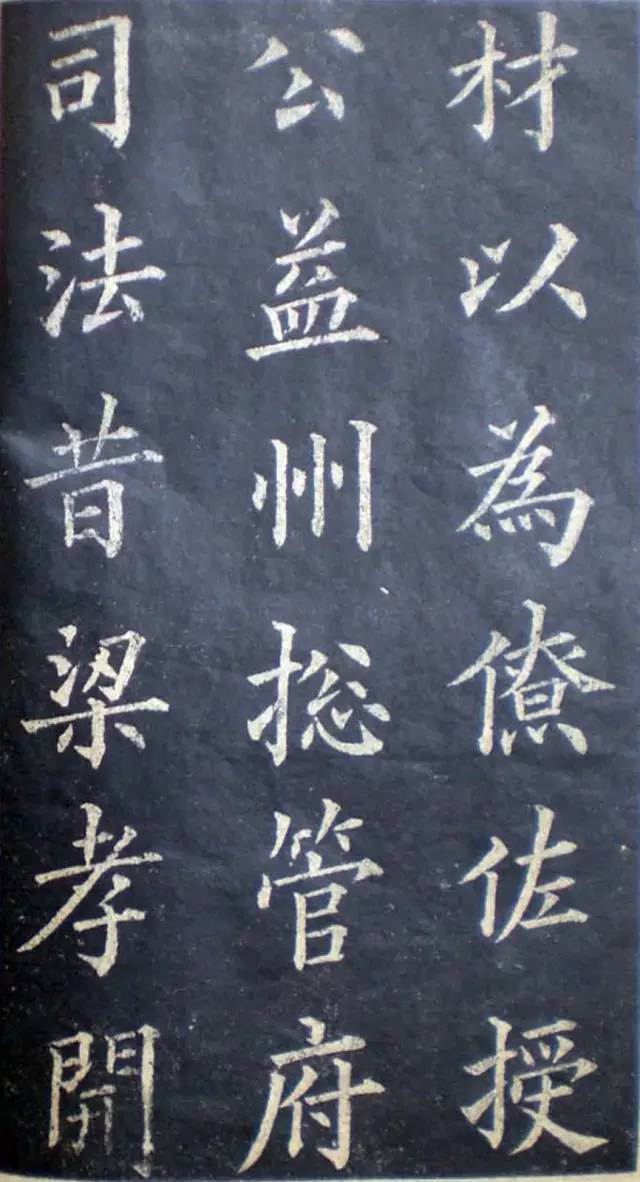 材以為僚佐授
公益州捴管府
司法昔梁孝開